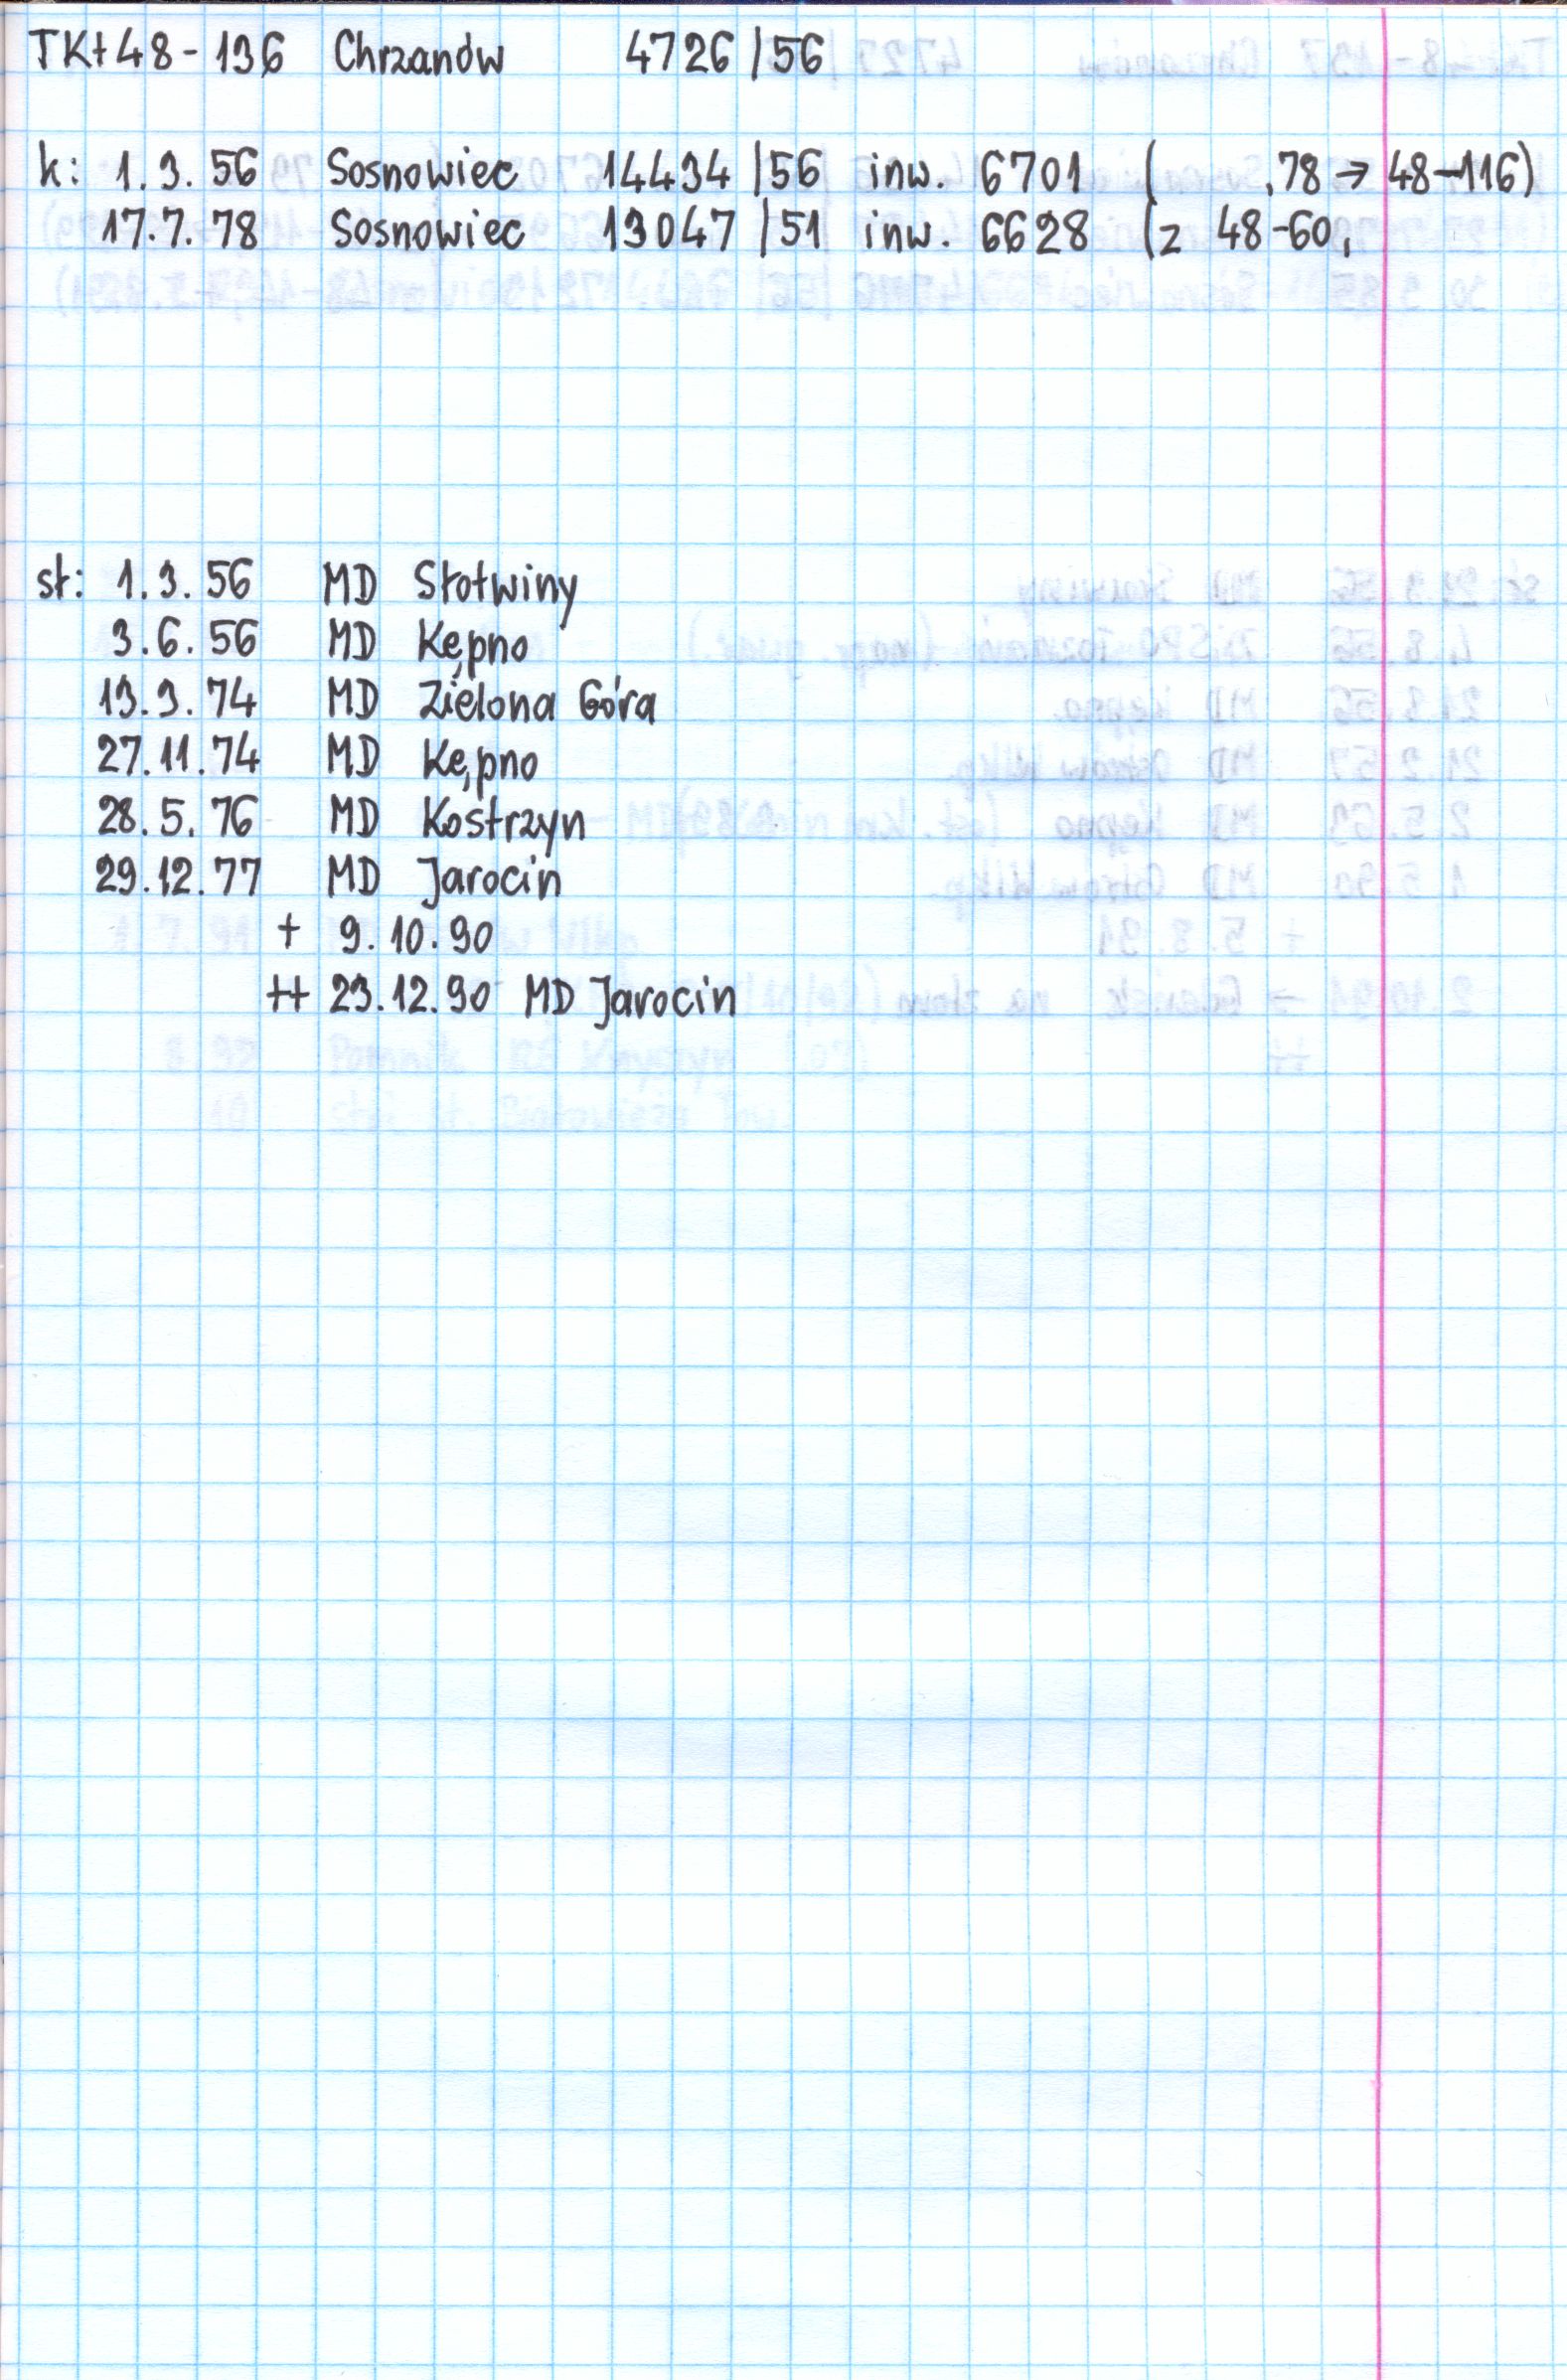 TKt48-136 Chrzanów 4726/56
k: 1.3.56 Sosnowiec 14434/56 inw. 6701 ( .78 → 48-116)
17.7.78 Sosnowiec 13047/51 inw. 6628 (z 48-60,
st: 1.3.56 MD Słotwiny
3.6.56 MD Kępno
13.3.74 MD Zielona Góra
27.11.74 MD Kępno
28.5.76 MD Kostrzyn
29.12.77 MD Jarocin
+ 9.10.90
++ 23.12.90 MD Jarocin